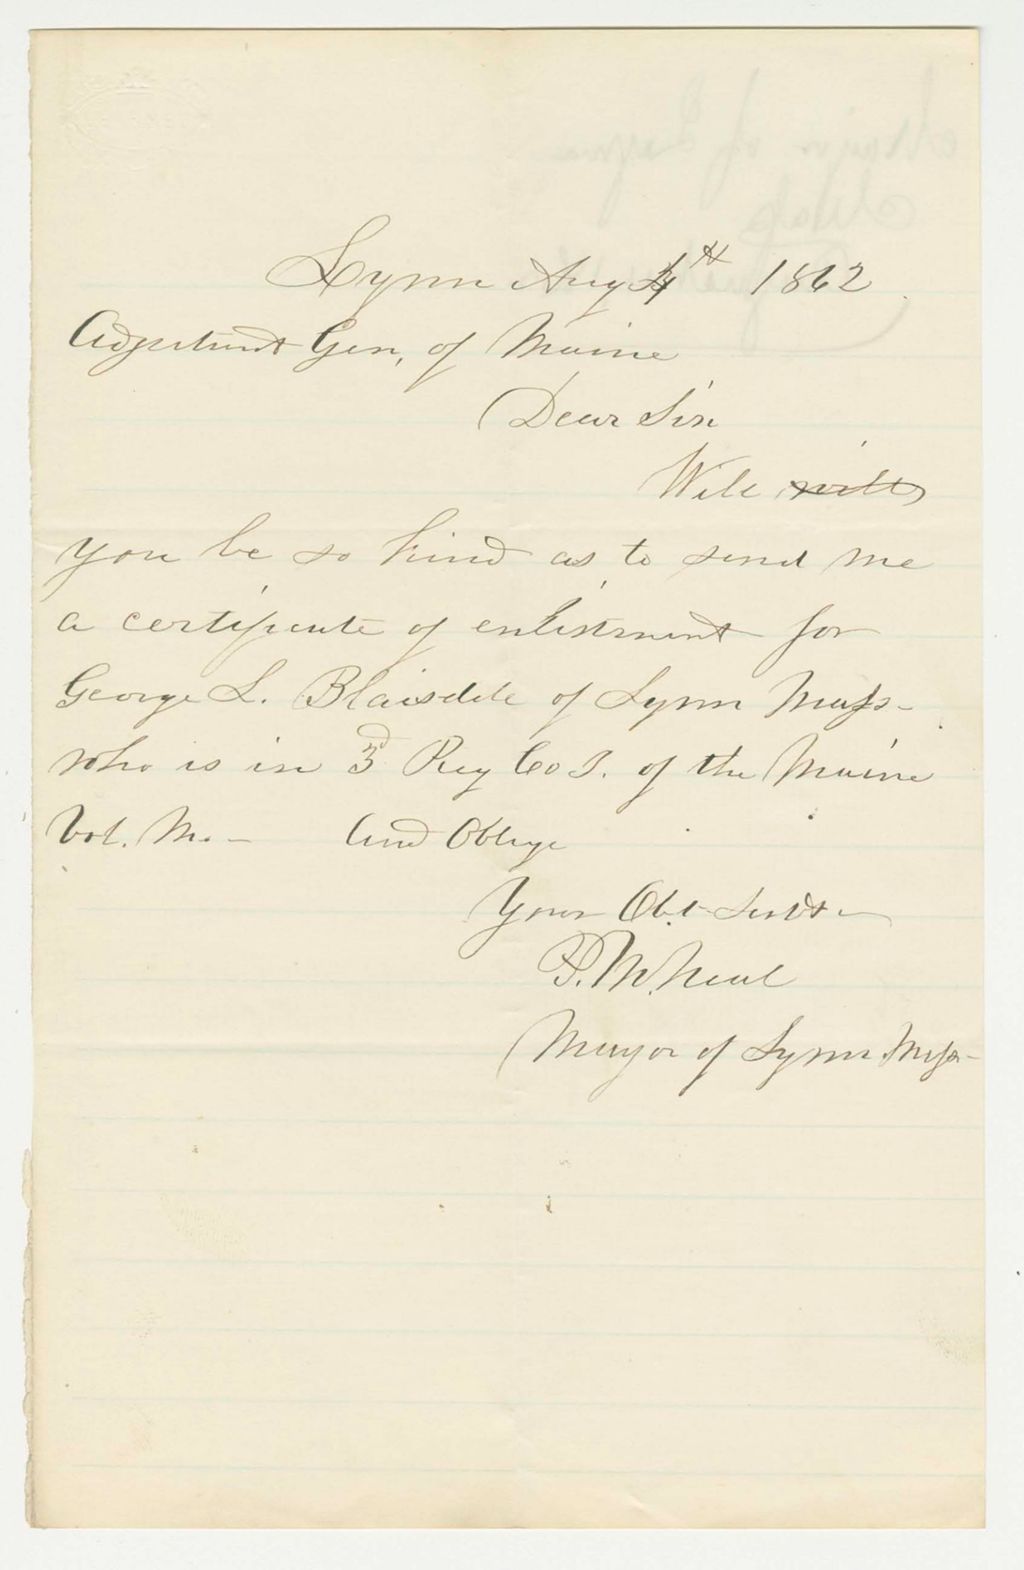 Lynn Aug 4th 1862
Adjutant Gen, of Maine
Dear Sir
Will will
you be so kind as to send me
a certificate of enlistment for
George L. Blaisdell of Lynn Mass-
who is in 3d Reg Co I. of the Maine
Vol. M. - And Oblige
Your Obt Servt -
P. M. Neal
Mayor of Lynn Mass-